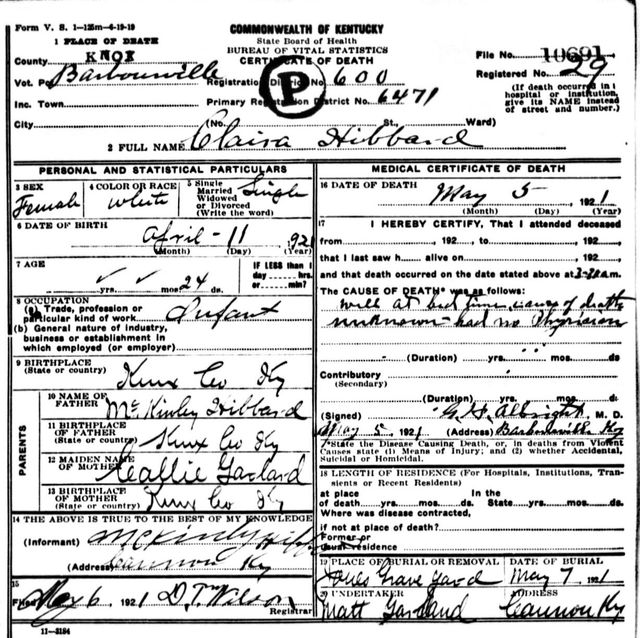 Form V. S. 1—125m—6-19-19
COMMONWEALTH OF KENTUCKY
State Board of Health
BUREAU OF VITAL STATISTICS
CERTIFICATE OF DEATH
1 PLACE OF DEATH
County KNOX
Vot. Pct. Barbourville
Inc. Town
City
Registration District No. 600
Primary Registration District No. 6471
(No. St., Ward)
File No. 10691
Registered No. 29
(If death occurred in
hospital or institution,
give its NAME instead
of street and number.)
P
2 FULL NAME Claira Hibbard
PERSONAL AND STATISTICAL PARTICULARS
3 SEX Female
4 COLOR OR RACE White
5 Single
Married
Widowed
or Divorced
(Write the word) Single
6 DATE OF BIRTH
April - 11 1921
(Month) (Day) (Year)
7 AGE
yrs. mos. 24 ds.
IF LESS than 1
day hrs.
or min?
8 OCCUPATION
(a) Trade, profession or
particular kind of work Infant
(b) General nature of industry,
business or establishment in
which employed (or employer)
9 BIRTHPLACE
(State or country) Knox Co Ky
PARENTS
10 NAME OF
FATHER McKinley Hibbard
11 BIRTHPLACE
OF FATHER
(State or country) Knox Co Ky
12 MAIDEN NAME
OF MOTHER Callie Garland
13 BIRTHPLACE
OF MOTHER
(State or country) Knox Co Ky
14 THE ABOVE IS TRUE TO THE BEST OF MY KNOWLEDGE
(Informant) McKinley
(Address) Cannon Ky
15
Filed May 6, 1921 D. T. Wilson
Registrar
11—3184
MEDICAL CERTIFICATE OF DEATH
16 DATE OF DEATH
May 5 1921
(Month) (Day) (Year)
17 I HEREBY CERTIFY, That I attended deceased
from , 192 , to , 192 ,
that I last saw h alive on , 192 ,
and that death occurred on the date stated above at 3-30 am.
The CAUSE OF DEATH* was as follows:
Well at bed time, cause of death
unknown - had no Physician
(Duration) yrs. mos. ds
Contributory
(Secondary)
(Duration) yrs. mos. ds
(Signed) Albright, M. D.
May 5, 1921 (Address) Barbourville Ky
*State the Disease Causing Death, or, in deaths from Violent
Causes state (1) Means of Injury; and (2) whether Accidental,
Suicidal or Homicidal.
18 LENGTH OF RESIDENCE (For Hospitals, Institutions, Tran-
sients or Recent Residents)
at place In the
of death yrs. mos. ds. State yrs. mos. ds.
Where was disease contracted,
if not at place of death?
Former or
usual residence
19 PLACE OF BURIAL OR REMOVAL Grave Yard
DATE OF BURIAL May 7 1921
20 UNDERTAKER Matt Garland
ADDRESS Cannon Ky